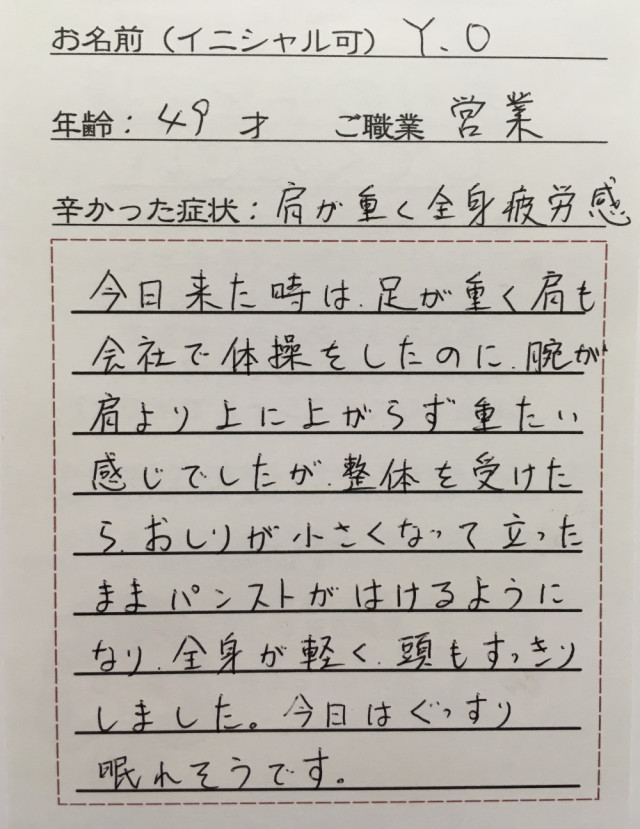 お名前（イニシャル可） Y.O
年齢：49才 ご職業 営業
辛かった症状：肩が重く全身疲労感
今日来た時は、足が重く肩も
会社で体操をしたのに、腕が
肩より上に上がらず重たい
感じでしたが、整体を受けた
ら、おしりが小さくなって立った
ままパンストがはけるように
なり、全身が軽く、頭もすっきり
しました。今日はぐっすり
眠れそうです。